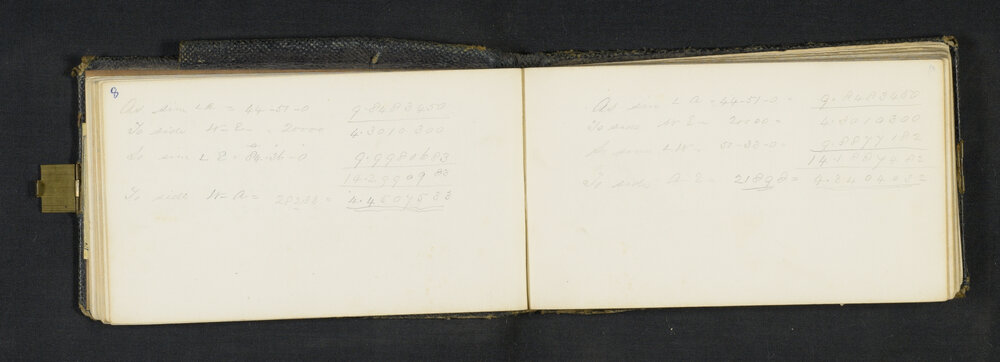 8
As sin ∠A = 44-51-0 9.8483450
To side W-E = 20000 4.3010300
So sin ∠E = 84-36-0 9.9980683
14.2990983
To side W-A = 28233 = 4.4507533
As sin ∠A = 44-51-0 = 9.8483450
To side W-E = 20000 = 4.3010300
So sin ∠W = 50-33-0 = 9.8877182
14.1887482
To side A-E = 21898 = 4.3404032